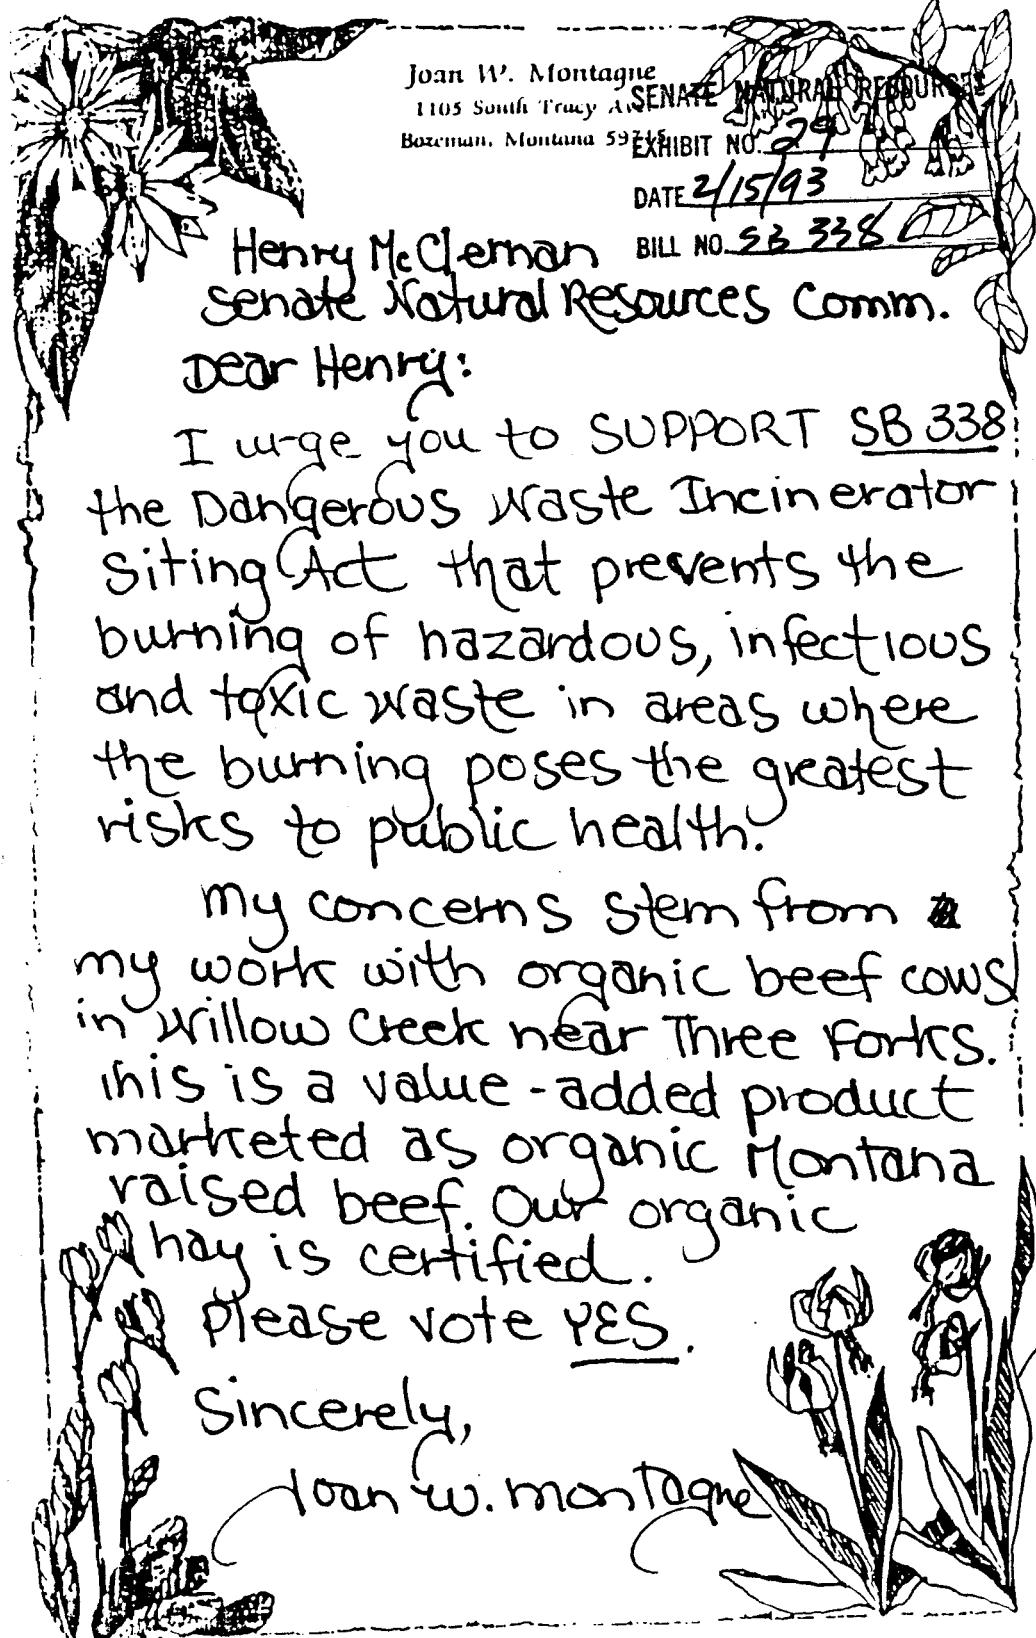 Joan W. Montagne
1105 South Tracy
Bozeman, Montana 59715
SENATE NATURAL RESOURCES
EXHIBIT NO. 29
DATE 2/15/93
BILL NO. SB 338
Henry McClernan
Senate Natural Resources Comm.
Dear Henry:
I urge you to SUPPORT SB 338
the Dangerous Waste Incinerator
Siting Act that prevents the
burning of hazardous, infectious
and toxic waste in areas where
the burning poses the greatest
risks to public health.
My concerns stem from
my work with organic beef cows
in Willow Creek near Three Forks.
This is a value-added product
marketed as organic Montana
raised beef. Our organic
hay is certified.
Please vote YES.
Sincerely,
Joan W. Montagne